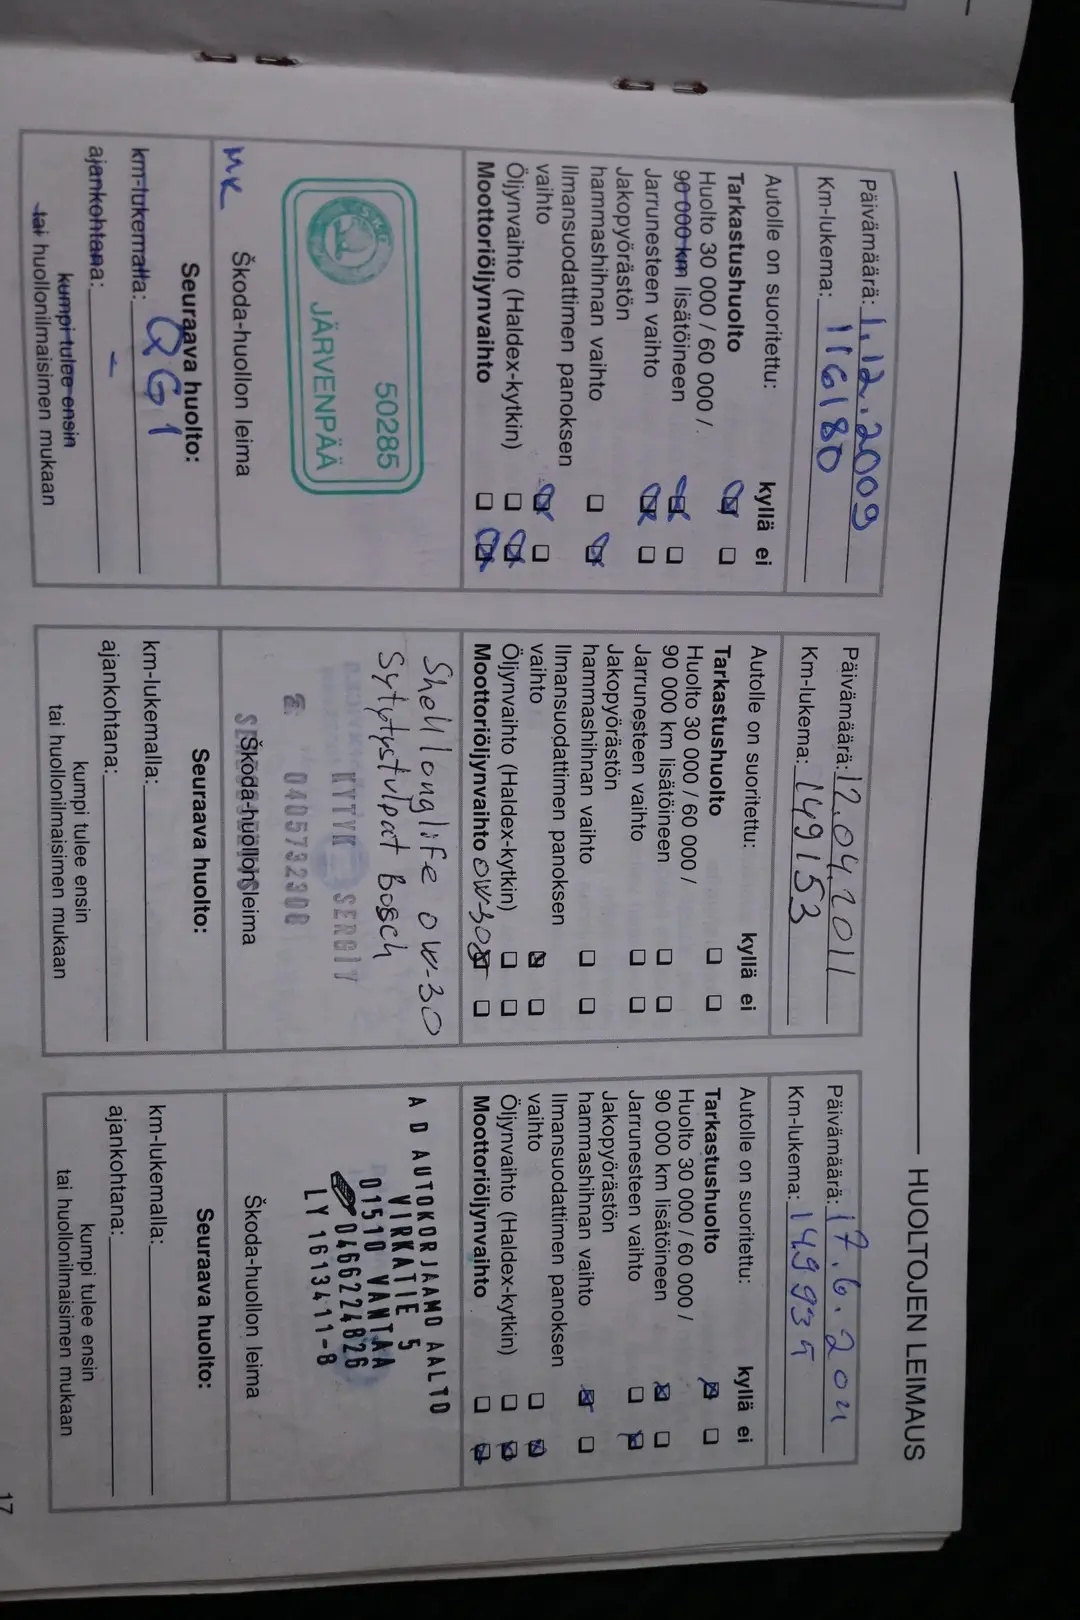 HUOLTOJEN LEIMAUS
Päivämäärä: 1.12.2009
Km-lukema: 116180
Autolle on suoritettu:
kyllä ei
Tarkastushuolto
Huolto 30 000 / 60 000 /
90 000 km lisätöineen
Jarrunesteen vaihto
Jakopyörästön
hammashihnan vaihto
Ilmansuodattimen panoksen
vaihto
Öljynvaihto (Haldex-kytkin)
Moottoriöljynvaihto
50285
JÄRVENPÄÄ
MK
Škoda-huollon leima
Seuraava huolto:
km-lukemalla: QG1
ajankohtana: -
kumpi tulee ensin
tai huollonilmaisimen mukaan
Päivämäärä: 12.04.2011
Km-lukema: 149153
Autolle on suoritettu:
kyllä ei
Tarkastushuolto
Huolto 30 000 / 60 000 /
90 000 km lisätöineen
Jarrunesteen vaihto
Jakopyörästön
hammashihnan vaihto
Ilmansuodattimen panoksen
vaihto
Öljynvaihto (Haldex-kytkin)
Moottoriöljynvaihto 0W-30
Shell longlife 0W-30
Sytytystulpat Bosch
KYTYK SERGIY
☎ 0405732308
Škoda-huollon leima
Seuraava huolto:
km-lukemalla:
ajankohtana:
kumpi tulee ensin
tai huollonilmaisimen mukaan
Päivämäärä: 17.6.2011
Km-lukema: 149935
Autolle on suoritettu:
kyllä ei
Tarkastushuolto
Huolto 30 000 / 60 000 /
90 000 km lisätöineen
Jarrunesteen vaihto
Jakopyörästön
hammashihnan vaihto
Ilmansuodattimen panoksen
vaihto
Öljynvaihto (Haldex-kytkin)
Moottoriöljynvaihto
A D AUTOKORJAAMO AALTO
VIRKATIE 5
01510 VANTAA
0466224826
LY 1613411-8
Škoda-huollon leima
Seuraava huolto:
km-lukemalla:
ajankohtana:
kumpi tulee ensin
tai huollonilmaisimen mukaan
17